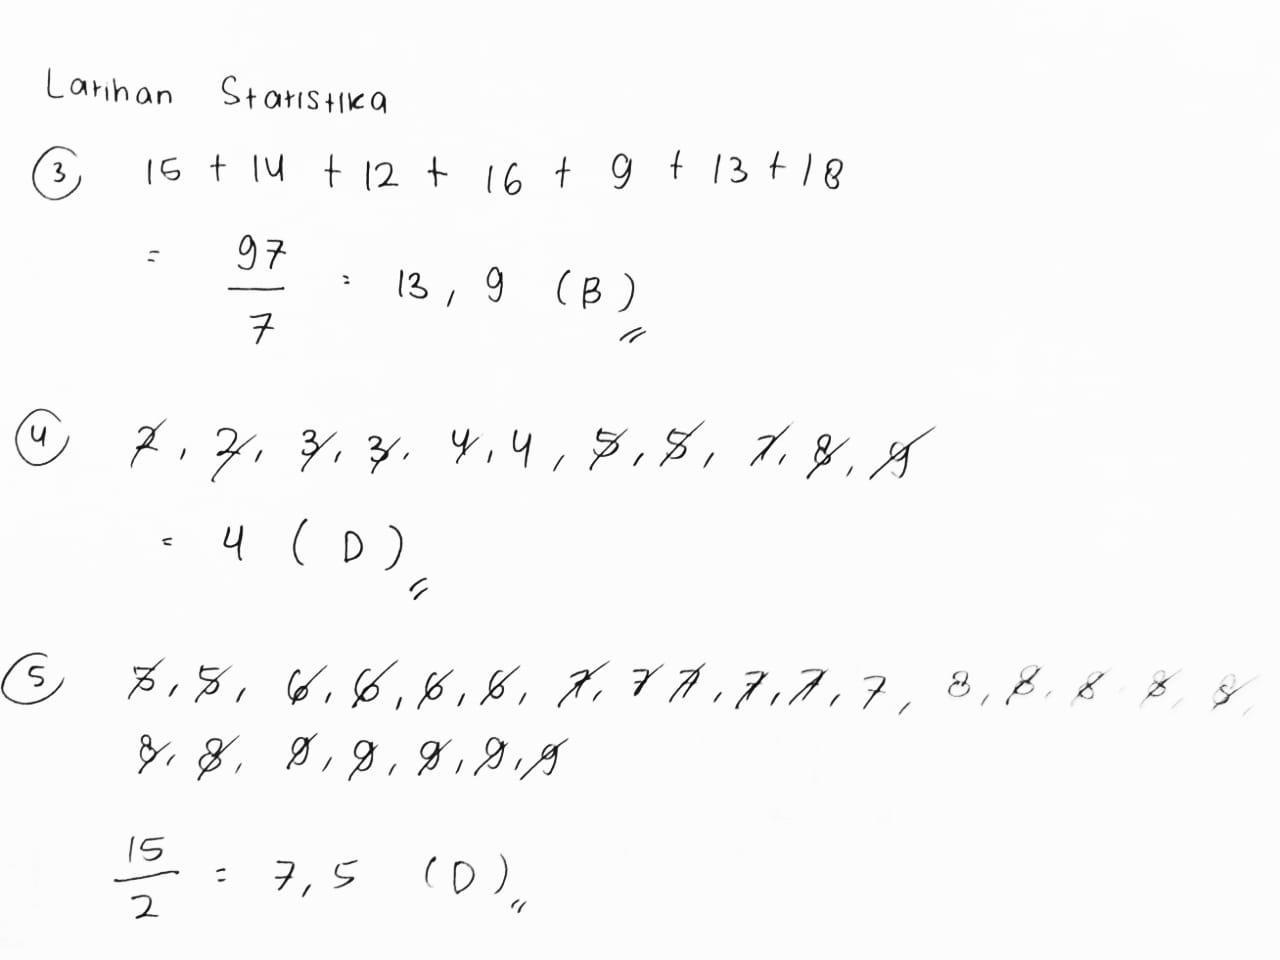 Latihan Statistika
3 15 + 14 + 12 + 16 + 9 + 13 + 18
= 97/7 = 13,9 (B)
4 2, 2, 3, 3, 4, 4, 5, 5, 7, 8, 9
= 4 (D)
5 5, 5, 6, 6, 6, 6, 7, 7 7, 7, 7, 7, 8, 8, 8 8, 8,
8, 8, 9, 9, 9, 9, 9
15/2 = 7,5 (D)